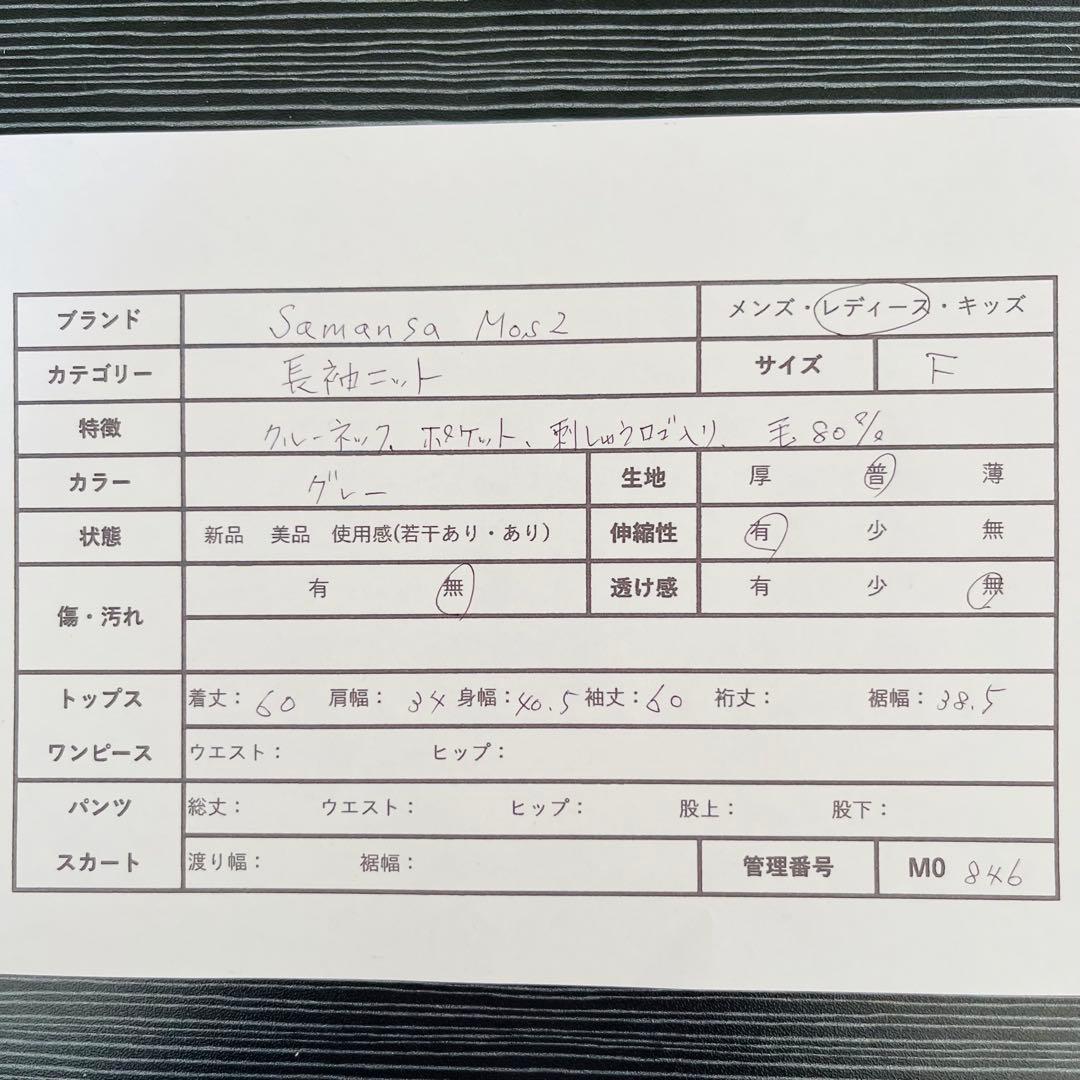 ブランド Samansa Mos2 メンズ・レディース・キッズ
カテゴリー 長袖ニット サイズ F
特徴 クルーネック、ポケット、刺しゅうロゴ入り、毛80%
カラー グレー 生地 厚 普 薄
状態 新品 美品 使用感(若干あり・あり) 伸縮性 有 少 無
傷・汚れ 有 無 透け感 有 少 無
トップス 着丈：60 肩幅：34 身幅：40.5 袖丈：60 裄丈： 裾幅：38.5
ワンピース ウエスト： ヒップ：
パンツ 総丈： ウエスト： ヒップ： 股上： 股下：
スカート 渡り幅： 裾幅： 管理番号 M0 846